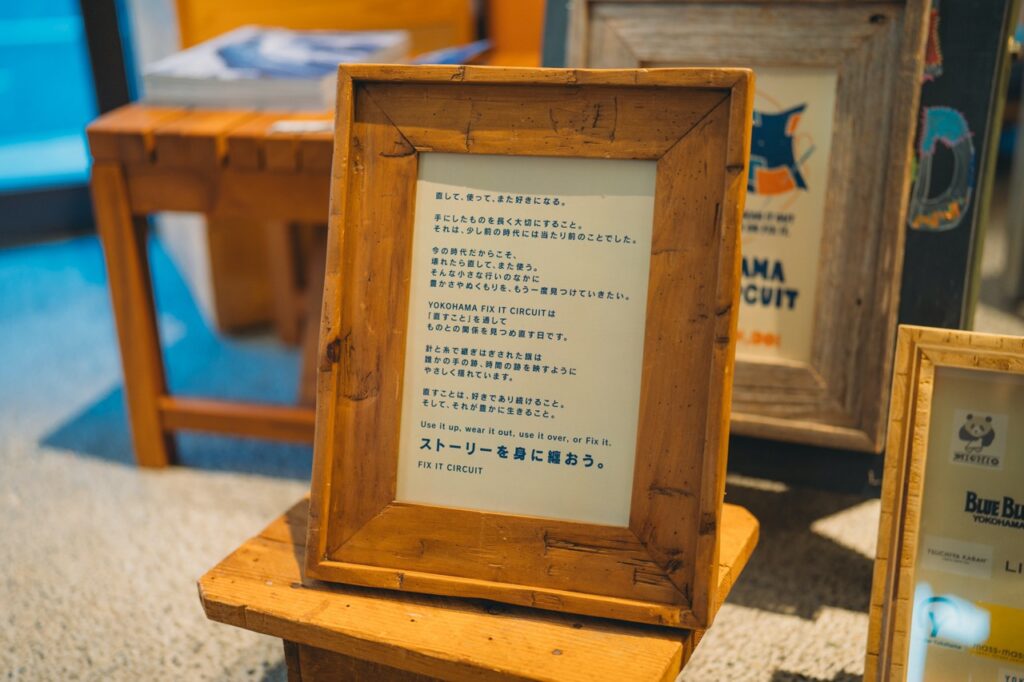 直して、使って、また好きになる。
手にしたものを長く大切にすること。
それは、少し前の時代には当たり前のことでした。
今の時代だからこそ、
壊れたら直して、また使う。
そんな小さな行いのなかに
豊かさやぬくもりを、もう一度見つけていきたい。
YOKOHAMA FIX IT CIRCUITは
「直すこと」を通して
ものとの関係を見つめ直す日です。
針と糸で継ぎはぎされた旗は
誰かの手の跡、時間の跡を映すように
やさしく揺れています。
直すことは、好きであり続けること。
そして、それが豊かに生きること。
Use it up, wear it out, use it over, or Fix it.
ストーリーを身に纏おう。
FIX IT CIRCUIT
BLUE BL
YOKOHAMA
TSUCHIYA KABAN
LI
mass-mas